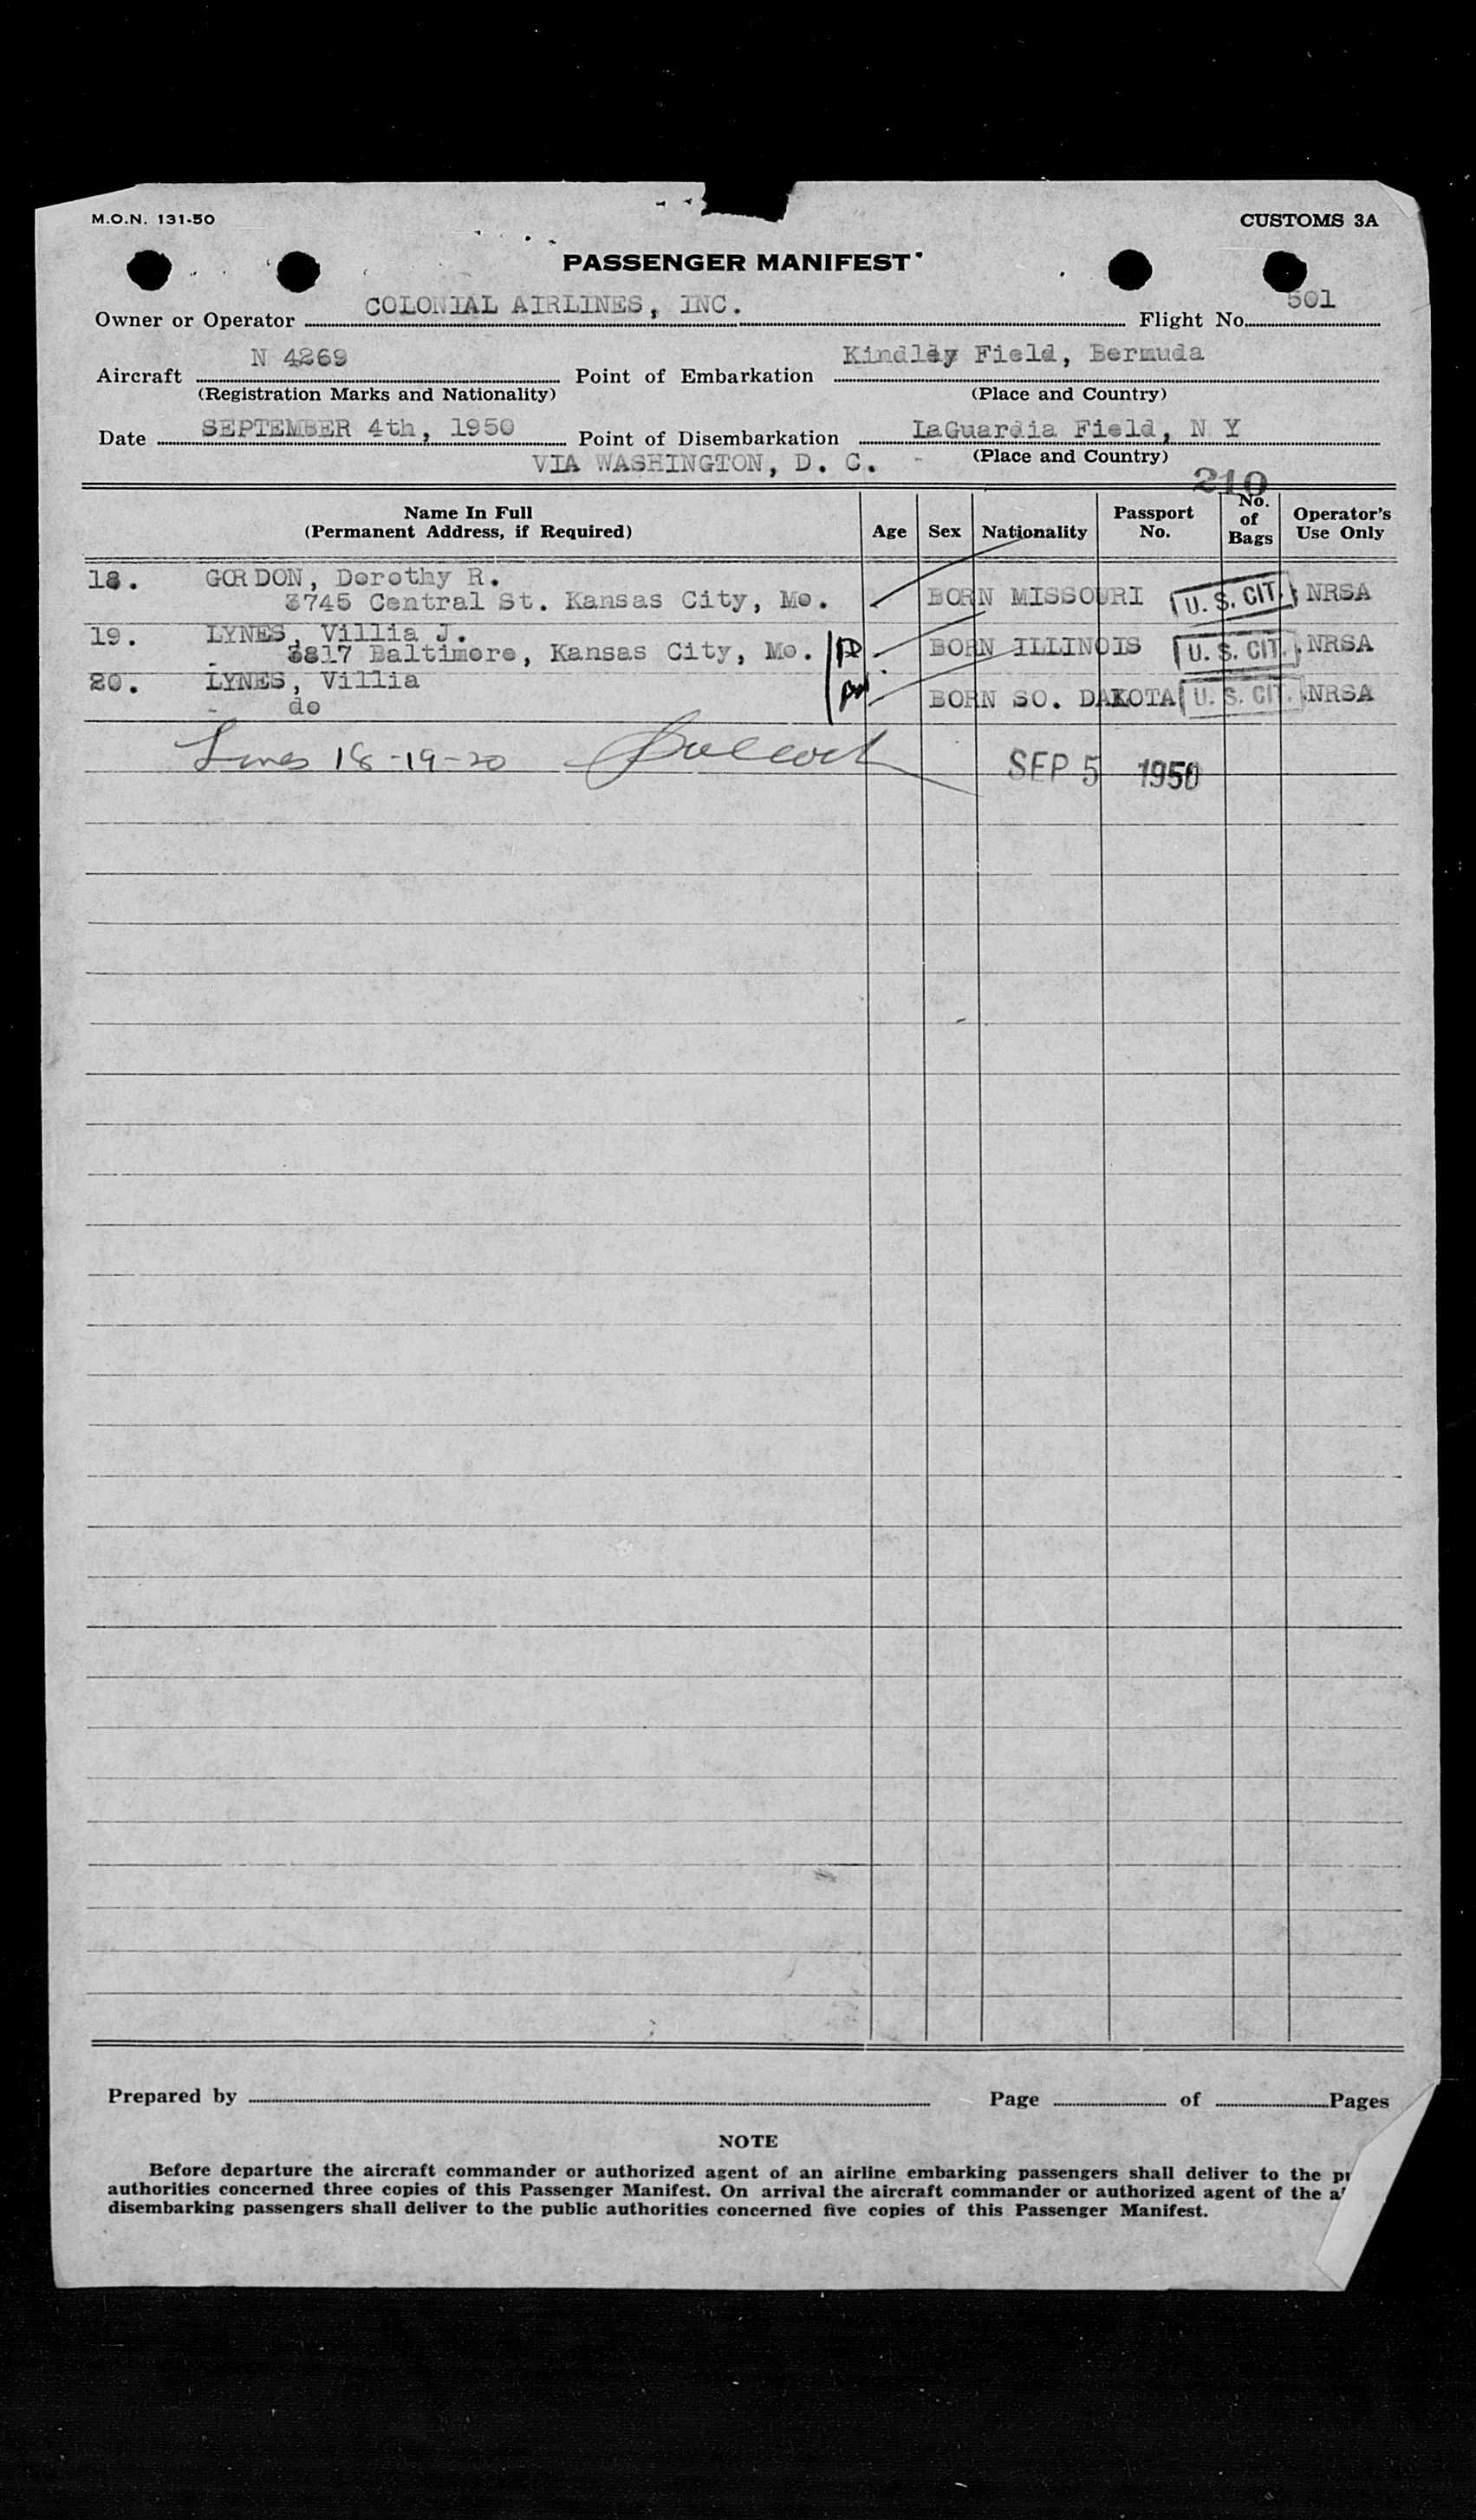 M.O.N. 131-50
CUSTOMS 3A
PASSENGER MANIFEST
Owner or Operator COLONIAL AIRLINES, INC. Flight No. 501
Aircraft N 4269 Point of Embarkation Kindley Field, Bermuda
(Registration Marks and Nationality) (Place and Country)
Date SEPTEMBER 4th, 1950 Point of Disembarkation LaGuardia Field, N Y
VIA WASHINGTON, D. C. (Place and Country)
210
Name In Full (Permanent Address, if Required) Age Sex Nationality Passport No. No. of Bags Operator's Use Only
18. GORDON, Dorothy R.
3745 Central St. Kansas City, Mo. BORN MISSOURI U. S. CIT. NRSA
19. LYNES, Villia J.
3817 Baltimore, Kansas City, Mo. BORN ILLINOIS U. S. CIT. NRSA
20. LYNES, Villia
do BORN SO. DAKOTA U. S. CIT. NRSA
Lines 18-19-20 SEP 5 1950
Prepared by Page of Pages
NOTE
Before departure the aircraft commander or authorized agent of an airline embarking passengers shall deliver to the
authorities concerned three copies of this Passenger Manifest. On arrival the aircraft commander or authorized agent of the
disembarking passengers shall deliver to the public authorities concerned five copies of this Passenger Manifest.